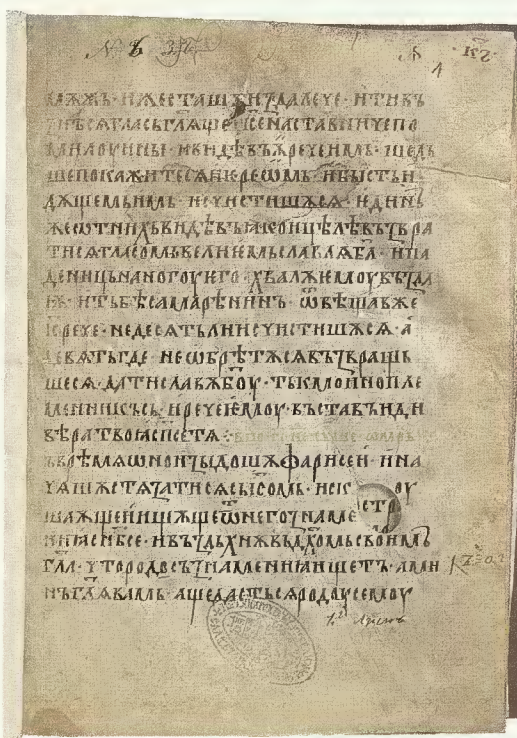 мѫжь · иже сташѫ издалече · и ти въ
знѣсѧ гласъ глѧще · їсе наставниче по
милоуи ны · и видѣвъ ѧ рече имь · шедъ
ше покажите сѧ иереѡмъ · и бысть и
дѫщемь имь исчистишѧсѧ · единь
же ѿ нихъ видѣвъ ꙗко исцѣлѣ възвра
тисѧ гласомь велиемь славѧ ба · и па
де ниць на ногоу его · хвалѫ емоу възда
ѧ · и ть бѣ самарѣнинъ · ѿвѣщав же
їс рече · не десѧть ли исчистишѧсѧ · а
девѧть где · не ѡбрѣтѫсѧ възвращь
шесѧ · дати славѫ боу · тькмо иноплe
менникъ сь · и рече емоу · въставъ иди
вѣра твоꙗ спсе тѧ
ъ врѣмѧ ѡно изыдошѫ фарисеи · и на
чѧшѫ стѧзатисѧ съ їсомь · иск оу
шаѫще и ищѫще ѿ него знамe
ниꙗ съ нбсе · и въздъхнѫвь дхомь своимъ
гла · что родъ сь знамениꙗ ищетъ · ами
нь глѧ вамь · аще дасть сѧ родоу семоу